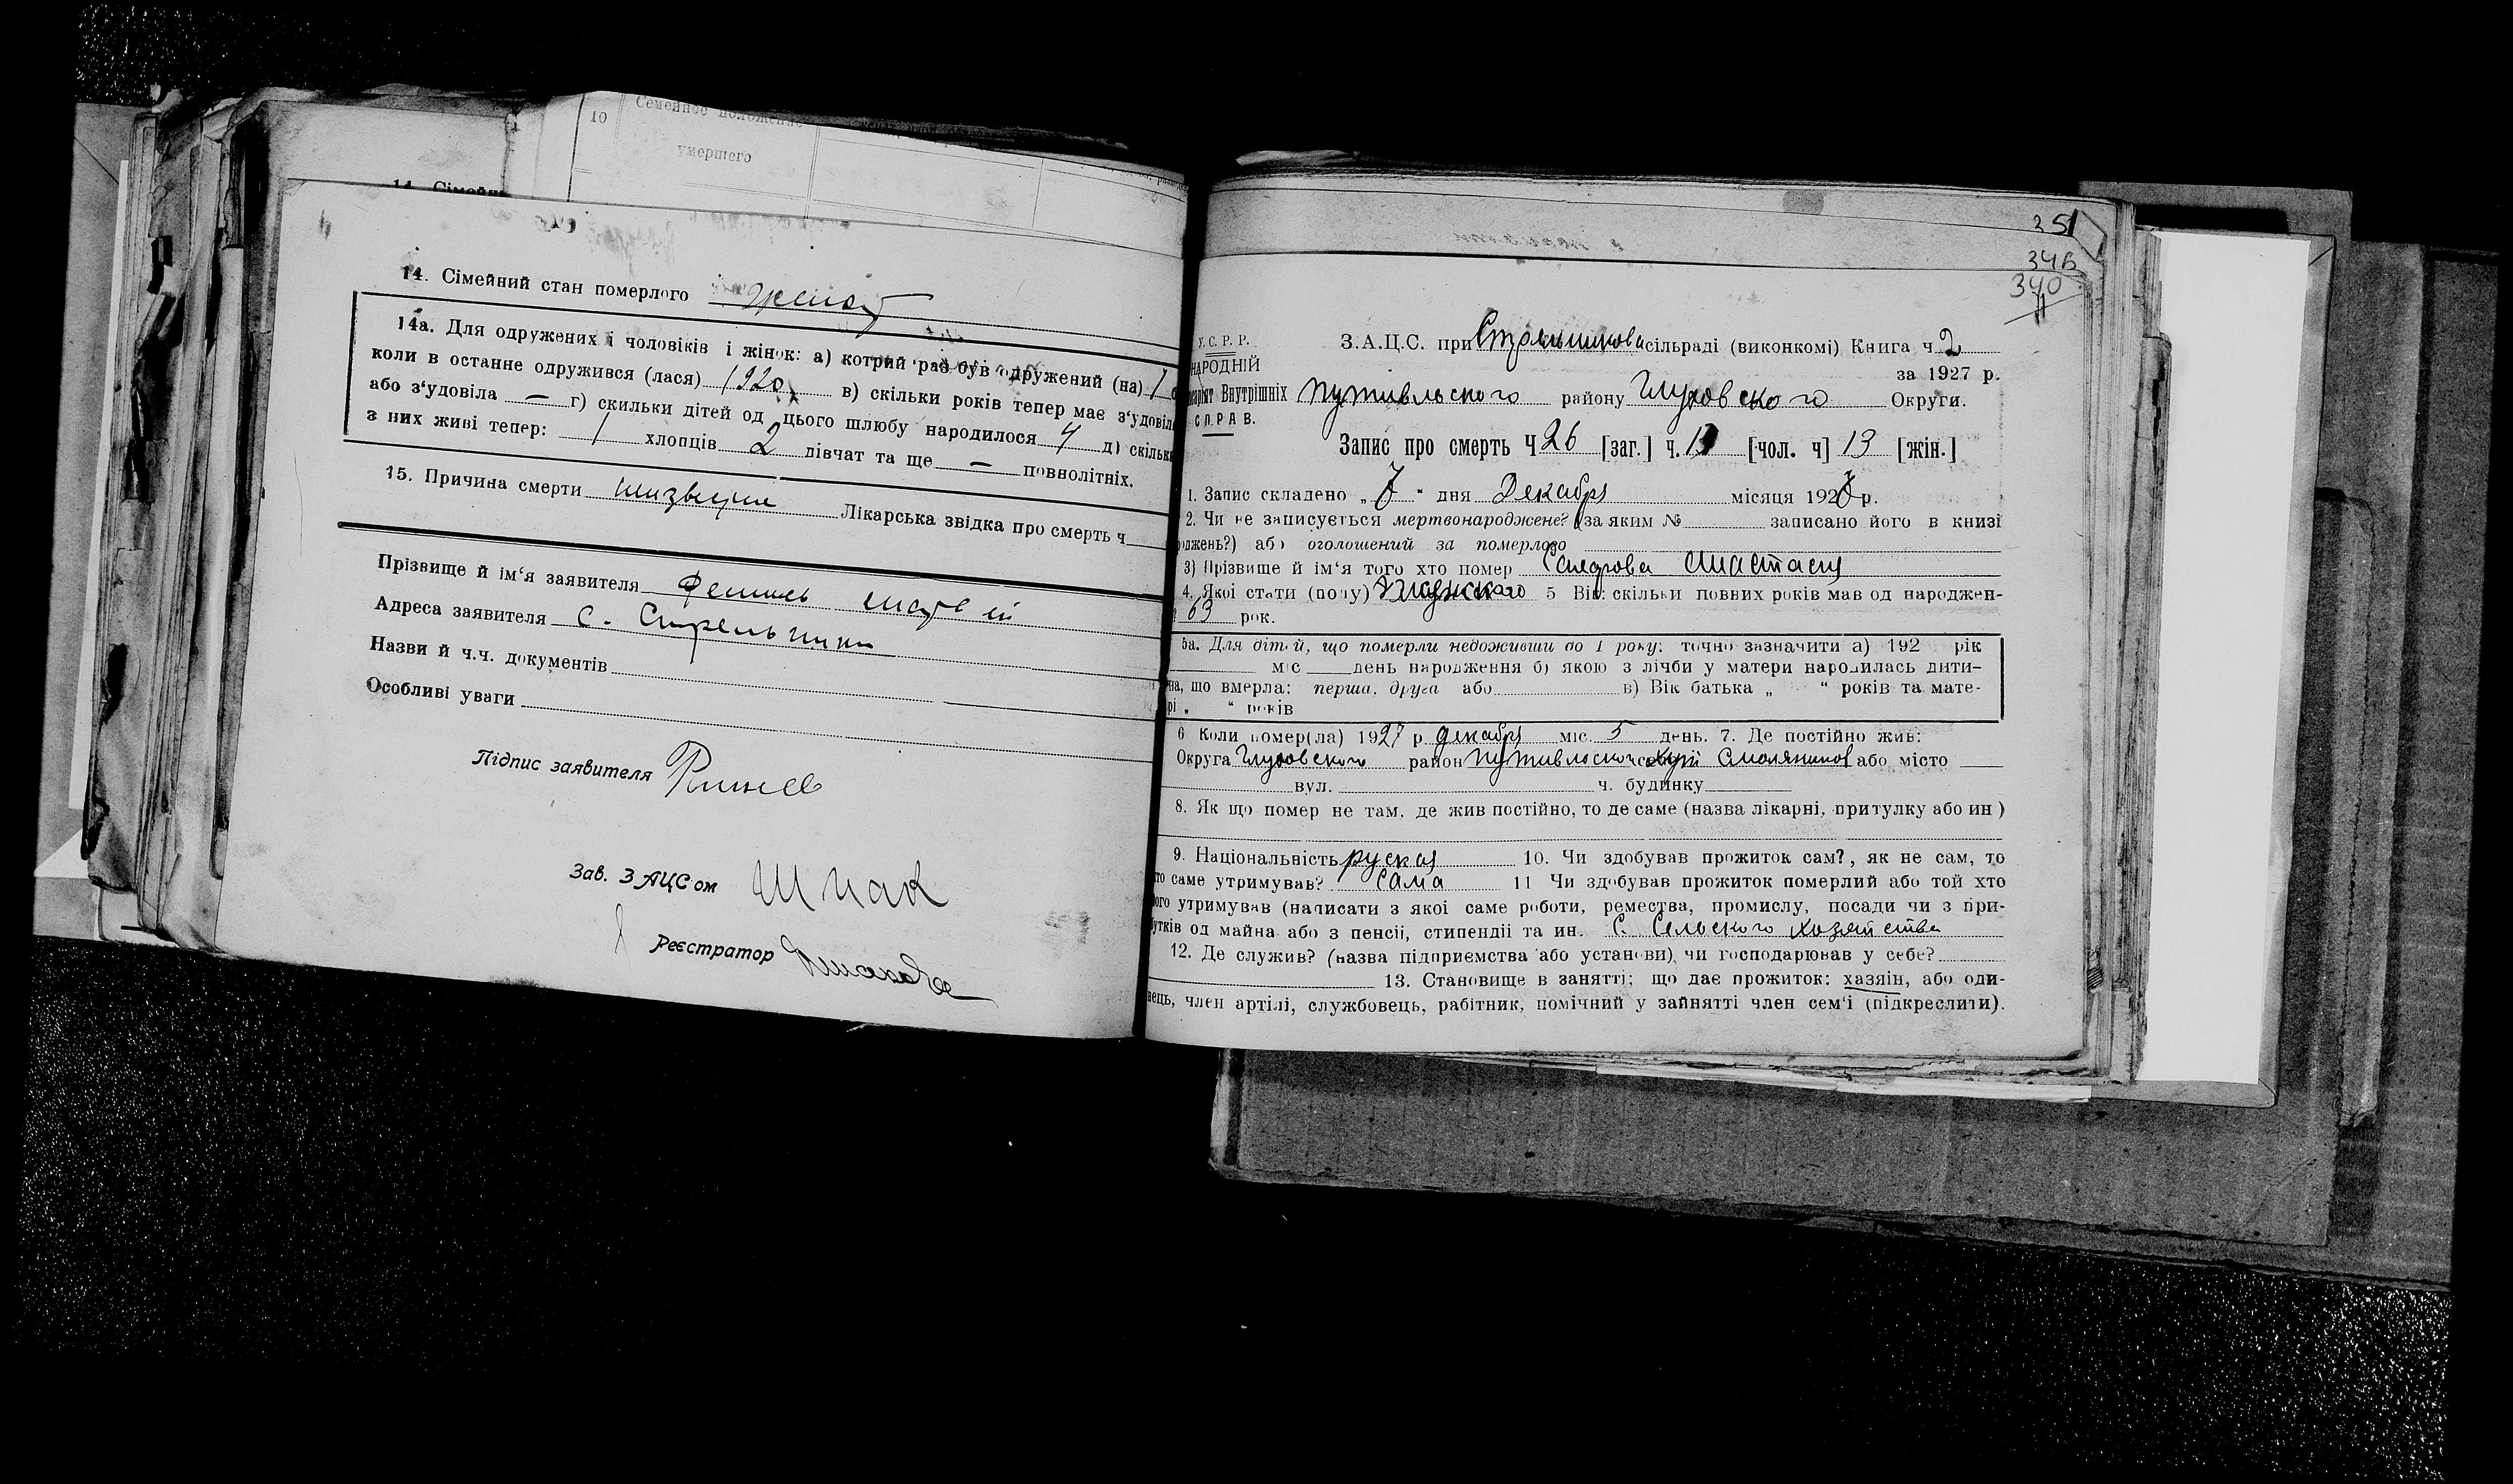 10
Семейное положение
умершего
14. Сімейн
14. Сімейний стан померлого женат
14а. Для одружених і чоловіків і жінок: а) котрий раз був одружений (на) 1
коли в останне одружився (лася) 1920 в) скільки років тепер має з'удовіла
або з'удовіла — г) скильки дітей од цього шлюбу народилося 4 д) скільки
з них живі тепер: 1 хлопців 2 дівчат та ще — повнолітніх.
15. Причина смерти Лікарська звідка про смерть ч
Прізвище й ім'я заявителя
Адреса заявителя с. Стрельники
Назви й ч.ч. документів
Особливі уваги
Підпис заявителя
Зав. ЗАЦСом Шпак
Реєстратор
351
346
340
У.С.Р.Р.
НАРОДНІЙ
З.А.Ц.С. при сільраді (виконкомі) Книга ч 2
за 1927 р.
Внутрішніх
СПРАВ.
Путивльского району Глуховского Округи.
Запис про смерть Ч 26 [заг.] ч. 13 [чол. ч] 13 [жін.]
1. Запис складено „ 7 “ дня Декабря місяця 1927 р.
2. Чи не записується мертвонароджене? (за яким № записано його в книзі
оджень?) або оголошений за померлого
3) Прізвище й ім'я того хто помер Анастасия
4. Якої стати (полу) Женскаго 5 Вік: скільки повних років мав од народжен-
63 рок.
5а. Для дітей, що померли недоживши до 1 року: точно зазначити а) 192 рік
міс день народження б) якою з лічби у матери народилась дити-
на, що вмерла: перша, друга або в) Вік батька „ “ років та мате-
рі „ “ років
6 Коли помер(ла) 1927 р декабря міс. 5 день. 7. Де постійно жив:
Округа Глуховского район Путивльского або місто
вул. ч. будинку
8. Як що помер не там, де жив постійно, то де саме (назва лікарні, притулку або ин)
9. Національність руская 10. Чи здобував прожиток сам?, як не сам, то
то саме утримував? сама 11 Чи здобував прожиток померлий або той хто
ого утримував (написати з якої саме роботи, ремества, промислу, посади чи з при-
бутків од майна або з пенсії, стипендії та ин. С. Сельского хозяйства
12. Де служив? (назва підприємства або установи) чи господарював у себе?
13. Становище в занятті: що дає прожиток: хазяін, або оди-
нець, член артілі, службовець, рабітник, помічний у зайнятті член сем'ї (підкреслити).